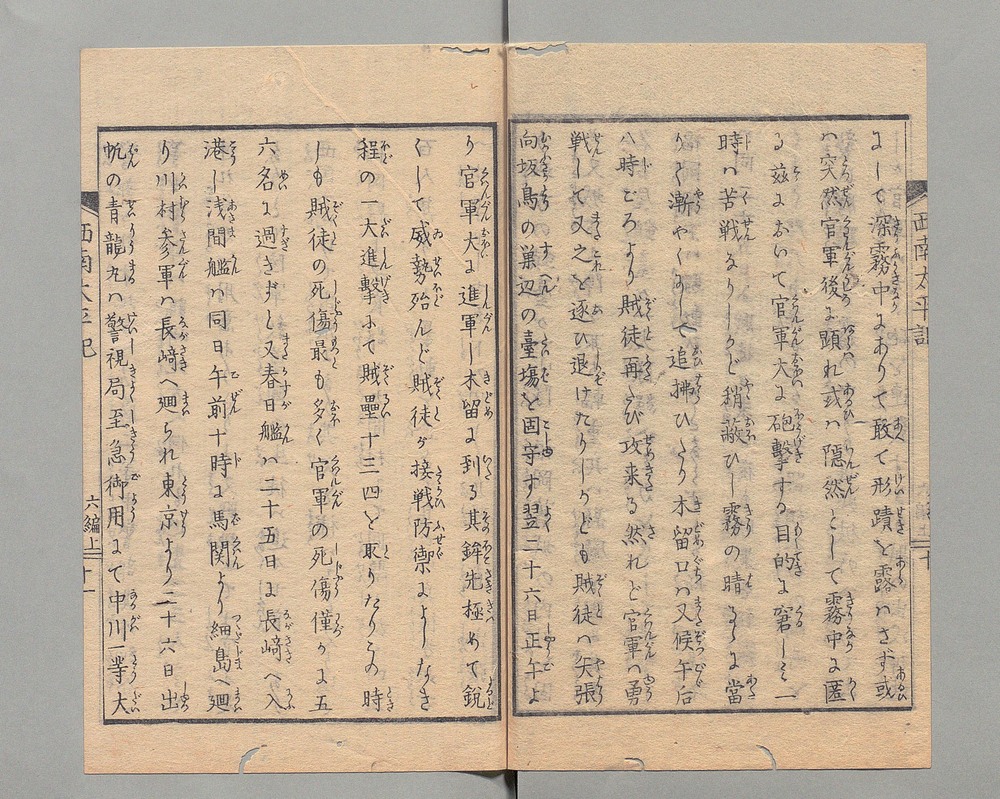 にして深霧中にありて敢て形蹟を露ハさず或
ハ突然官軍後に顕れ或ハ隠然として霧中に匿
る茲において官軍大に砲撃する目的に窘しミ一
時ハ苦戦なりしかど稍蔽ひし霧の晴るゝに當
りて漸やくにして追拂ひたり木留口ハ又候午后
八時ごろより賊徒再び攻来る然れど官軍ハ勇
戦して又之を逐ひ退けたりしかども賊徒ハ矢張
向坂鳥の巣辺の臺塲を固守す翌二十六日正午よ
り官軍大に進軍し木留に到る其鉾先極めて鋭
くして威勢殆んど賊徒が接戦防禦によしなき
程の一大進撃にて賊壘十三四を取りたりこの時
しも賊徒の死傷最も多く官軍の死傷僅かに五
六名に過ぎずと又春日艦ハ二十五日に長﨑へ入
港し浅間艦ハ同日午前十時に馬関より細島へ廻
り川村参軍ハ長﨑へ廻られ東京より二十六日出
帆の青龍丸ハ警視局至急御用にて中川一等大
西南太平記
六編上
十一